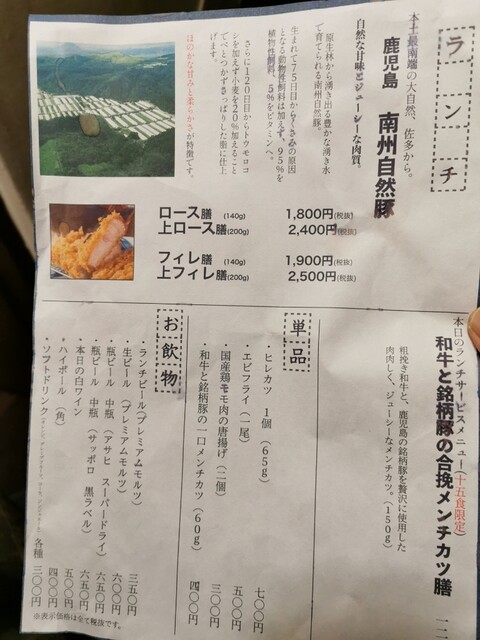 ランチ
本土最南端の大自然、佐多から。
鹿児島 南州自然豚
自然な甘味とジューシーな肉質。
原生林から湧き出る豊かな湧き水
で育てられる南州自然豚。
生まれて75日目からくさみの原因
となる動物性飼料は加えず、95%を
植物性飼料、5%をビタミンへ。
さらに120日目からトウモロコ
シを加えず小麦を20%加えること
でべとつかずさっぱりした脂に仕上
げます。
ほのかな甘みと柔らかさが特徴です。
ロース膳 (140g) 1,800円(税抜)
上ロース膳(200g) 2,400円(税抜)
フィレ膳 (140g) 1,900円(税抜)
上フィレ膳(200g) 2,500円(税抜)
本日のランチサービスメニュー(十五食限定)
和牛と銘柄豚の合挽メンチカツ膳
粗挽き和牛と、鹿児島の銘柄豚を贅沢に使用した
肉肉しく、ジューシーなメンチカツ。(150g)
単品
・ヒレカツ 1個(65g) 七〇〇円
・エビフライ(一尾) 五〇〇円
・国産鶏モモ肉の唐揚げ(二個) 三〇〇円
・和牛と銘柄豚の一口メンチカツ(60g) 四〇〇円
お飲物
・ランチビール(プレミアムモルツ) 三五〇円
・生ビール(プレミアムモルツ) 六〇〇円
・瓶ビール 中瓶(アサヒ スーパードライ) 六五〇円
・瓶ビール 中瓶(サッポロ 黒ラベル) 六五〇円
・本日の白ワイン 五〇〇円
・ハイボール(角) 四〇〇円
・ソフトドリンク 各種 三〇〇円
※表示価格は全て税抜です。